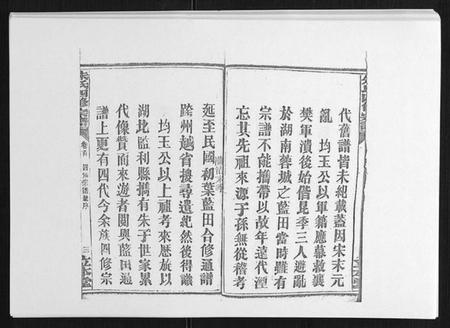 代舊譜皆未總載蓋因宋末元
亂 均玉公以軍籍應募救襄
樊軍潰後始偕昆季三人避亂
於湖南蓉城之藍田當時雖有
宗譜不能攜帶以故年遠代湮
忘其先祖來源子孫無從稽考
延至民國初葉藍田合修通譜
跨州越省搜尋遺紀然後得識
均玉公以上祖考來歷旋以
湖北監利縣擕有朱于世家累
代像贊而來遊者閱與藍田通
譜上更有四代今余族四修宗
朱氏四修宗譜
卷首
三